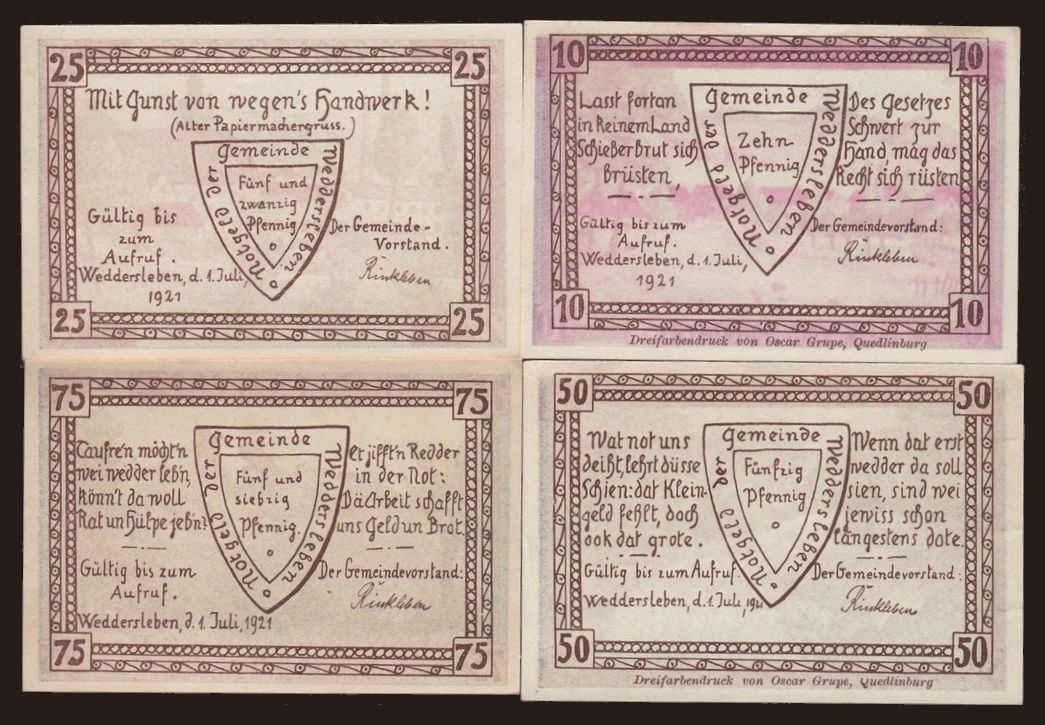 25
25
Mit Gunst von wegen's Handwerk!
(Alter Papiermachergruss.)
Notgeld der Gemeinde Weddersleben
Fünf und
zwanzig
Pfennig
Gültig bis
zum
Aufruf.
Weddersleben, d. 1. Juli,
1921
Der Gemeinde-
Vorstand.
Rinkleben
25
25
10
10
Lasst fortan
in Keinem Land
Schieberbrut sich
brüsten,
Notgeld der Gemeinde Weddersleben
Zehn
Pfennig
Des Gesetzes
Schwert zur
Hand, mag das
Recht sich rüsten
Gültig bis zum
Aufruf.
Weddersleben, d. 1. Juli,
1921
Der Gemeindevorstand:
Rinkleben
10
10
Dreifarbendruck von Oscar Grupe, Quedlinburg
75
75
wei wedder leb'n,
könn't da woll
Rat un Hülpe jeb'n?
Notgeld der Gemeinde Weddersleben
Fünf und
siebzig
Pfennig.
Redder
in der Not:
Dä Arbeit schafft
uns Geld un Brot.
Gültig bis zum
Aufruf.
Weddersleben, d. 1. Juli, 1921
Der Gemeindevorstand:
Rinkleben
75
75
50
50
Wat not uns
deiht, lehrt düsse
Schien: dat Klein-
geld fehlt, doch
ook dat grote.
Notgeld der Gemeinde Weddersleben
Fünfzig
Pfennig
Wenn dat erst
wedder da soll
sien, sind wei
jewiss schon
längestens dote.
Gültig bis zum Aufruf.
Weddersleben, d. 1. Juli, 1921
Der Gemeindevorstand:
Rinkleben
50
50
Dreifarbendruck von Oscar Grupe, Quedlinburg